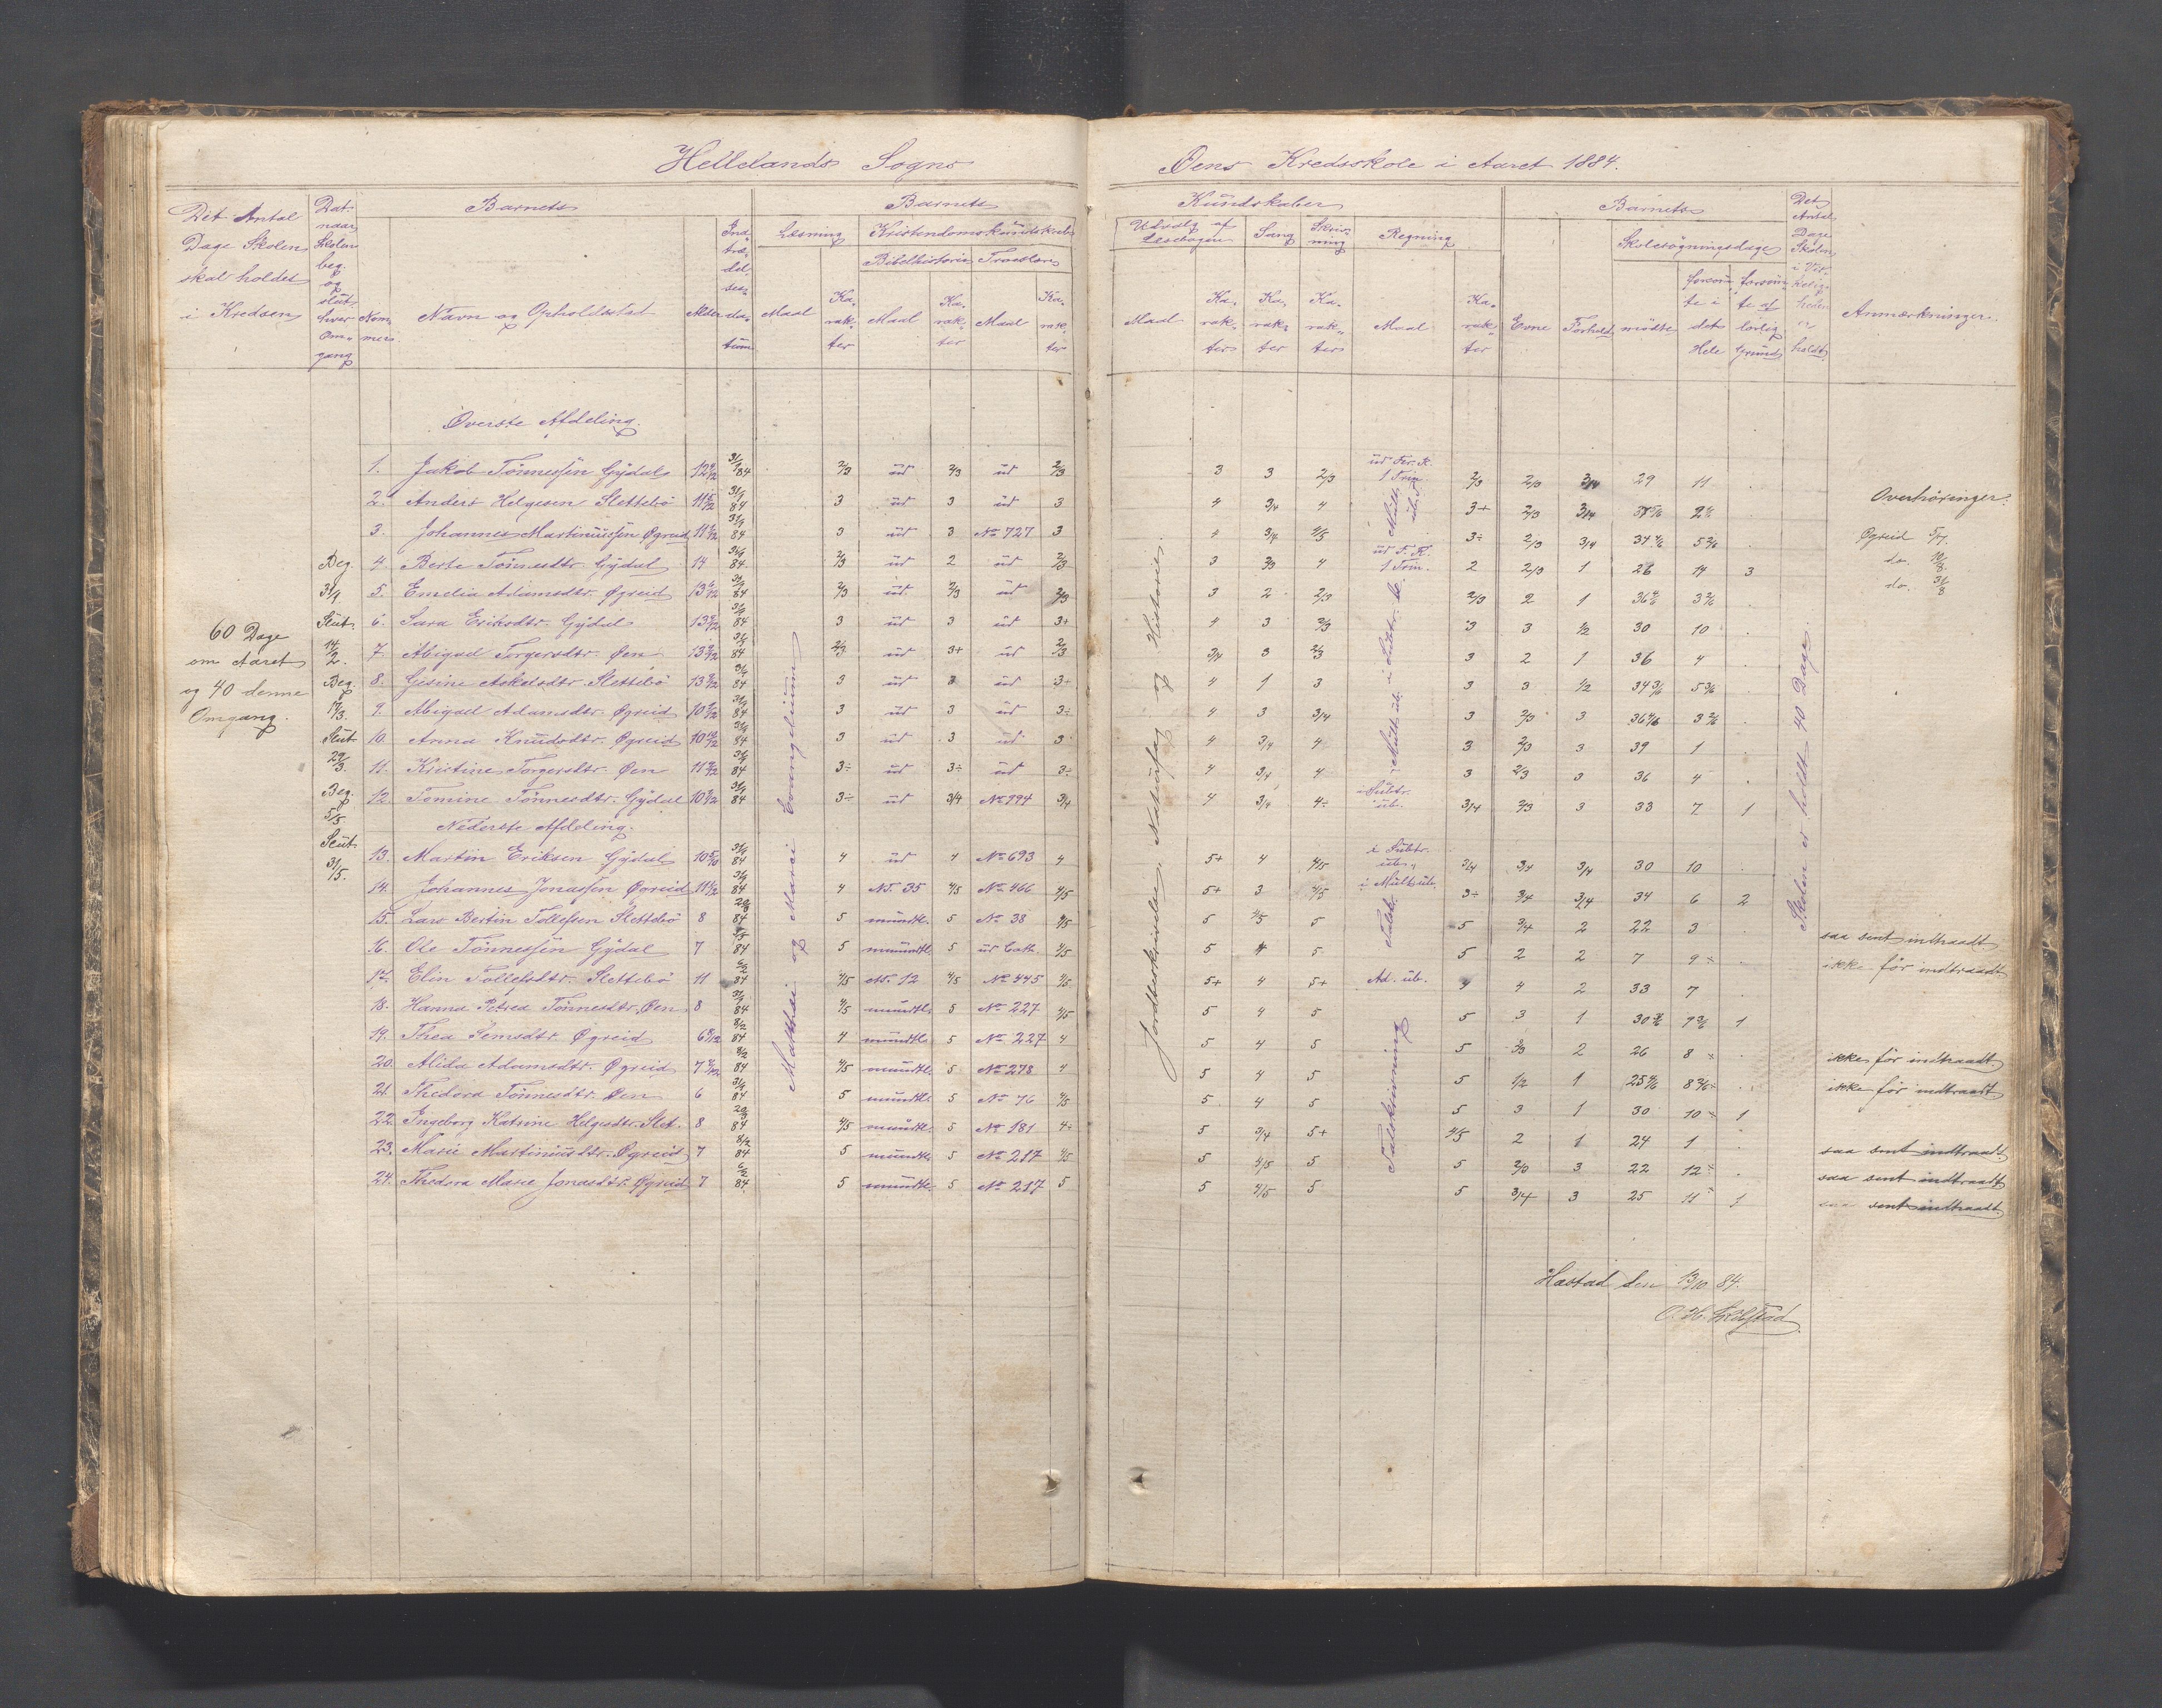 Hellelands Sogns Øens Kredsskole i Aaret 1884.
Det Antal Dage Skolen skal holdes i Kredsen
Dat. naar Skolen beg. og slut. hver Omgang
Nummer
Barnets
Navn og Opholdssted
Alder
Indtrædelsesdatum
Barnets
Kundskaber
Læsning Kristendomskundskab
Bibelhistorie Troeslære
Maal Karakter Maal Karakter Maal Karakter
Udvalg af Læsebogen Sang Skrivning Regning
Maal Karakter Karakter Karakter Maal Karakter
Barnets
Evne Forhold
Skolesøgningsdage
mødte forsømte i det Hele forsømte af lovlig Grund
Det Antal Dage Skolen i Virkeligheden er holdt
Anmærkninger.
Øverste Afdeling.
1. Jakob Tønnessen Gydal 31/1 84 2/3 ud 2/3 ud 2/3 3 3 2/3 2/3 2/3 3/4 29 11
2. Anders Helgesen Slettebø 31/1 84 3 ud 3 ud 3 4 3/4 4 3+ 2/3 3/4
3. Johannes Martinussen Øgreid 31/1 84 3 ud 3 No 727 3 4 3/4 4/5 3÷ 2/3 3/4
4. Berte Tønnesdtr. Gydal 14 31/1 84 2/3 ud 2 ud 2/3 3 2/3 4 2 2/3 1 26 14 3
5. Emelia Adamsdtr. Øgreid 31/1 84 2/3 ud 2/3 ud 2/3 3 2 2/3 2/3 2 1
6. Sara Eriksdtr. Gydal 31/1 84 3 ud 3 ud 3+ 4 3 2/3 3 3 1/2 30 10
7. Abigael Torgersdtr. Øen 31/1 84 2/3 ud 3+ ud 2/3 3/4 3 2/3 3 2 1 36 4
8. Gesine Aslaksdtr. Slettebø 31/1 84 3 ud 3 ud 3+ 4 1 3 3 3 1/2
9. Abigael Adamsdtr. Øgreid 31/1 84 3 ud 3 ud 3÷ 4 3 3/4 3 2/3 3
10. Anna Knudsdtr. Øgreid 31/1 84 3 ud 3 ud 3 4 3/4 4 3 2/3 3 39 1
11. Kristine Torgersdtr. Øen 31/1 84 3÷ ud 3÷ ud 3÷ 4 3/4 4 3 2/3 3 36 4
12. Tomine Tønnesdtr. Gydal 31/1 84 3÷ ud 3/4 No 994 3/4 4 3/4 4÷ 3/4 2/3 3 33 7 1
Nederste Afdeling.
13. Martin Eriksen Gydal 31/1 84 4 ud 4 No 693 4 5+ 4 4/5 3/4 3/4 3/4 30 10
14. Johannes Jonassen Øgreid 31/1 84 4 No. 35 4/5 No 466 4/5 5+ 3 4/5 3÷ 3/4 3/4 34 6 2
15. Lars Bertin Tollefsen Slettebø 8 84 5 mundtl. 5 No 38 4/5 5 4/5 5 5 3/4 2 22 3
16. Ole Tønnessen Gydal 7 84 5 mundtl. 5 ud Cath. 4/5 5 4 5 5 2 2 7 9
17. Elin Tollefsdtr. Slettebø 11 84 4/5 No. 12 4/5 No 445 4/5 5+ 4 5+ 4 4 2 33 7
18. Hanna Petrea Tønnesdtr. Øen 8 31/1 84 4/5 mundtl. 5 No 227 4/5 5 4 5 5 3 1
19. Thea Semsdtr. Øgreid 8/2 84 4 mundtl. 5 No 227 4 5 4 5 5 2/3 2 26 8
20. Alida Adamsdtr. Øgreid 8/2 84 4/5 mundtl. 5 No 278 4 5 4 5 5 1/2 1
21. Thedora Tønnesdtr. Øen 6 31/1 84 5 mundtl. 5 No 76 4/5 5 4 5 5 3 1 30 10 1
22. Ingeborg Katrine Helgesdtr. Slet. 8 84 4/5 mundtl. 5 No 181 4÷ 5 3/4 5+ 4/5 2 1 24 1
23. Marie Martinusdtr. Øgreid 7 8/2 84 5 mundtl. 5 No 217 4/5 5 4/5 5 5 3 22 12
24. Thedora Marie Jonasdtr. Øgreid 7 84 5 mundtl. 5 No 217 5 5 4/5 5 5 3/4 3 25 11 1
60 Dage
om Aaret
og 40 denne
Omgang.
Beg.
31/1
Slut.
14/2.
Beg.
17/3.
Slut
29/3.
Beg.
5/5.
Slut
31/5.
Matthæi og Marci Evangelium
Jordbeskrivelse, Naturfag og Historie.
i Subtr. ub.
i Mult. ub.
Ad. ub.
Talskrivning
Skolen er holdt 40 Dage.
Overhøringer.
Øgreid
do.
do.
saa sent indtraadt
ikke før indtraadt
ikke før indtraadt
ikke før indtraadt
saa sent indtraadt
saa sent indtraadt
saa sent indtraadt
Hæstad den 13/10 84.